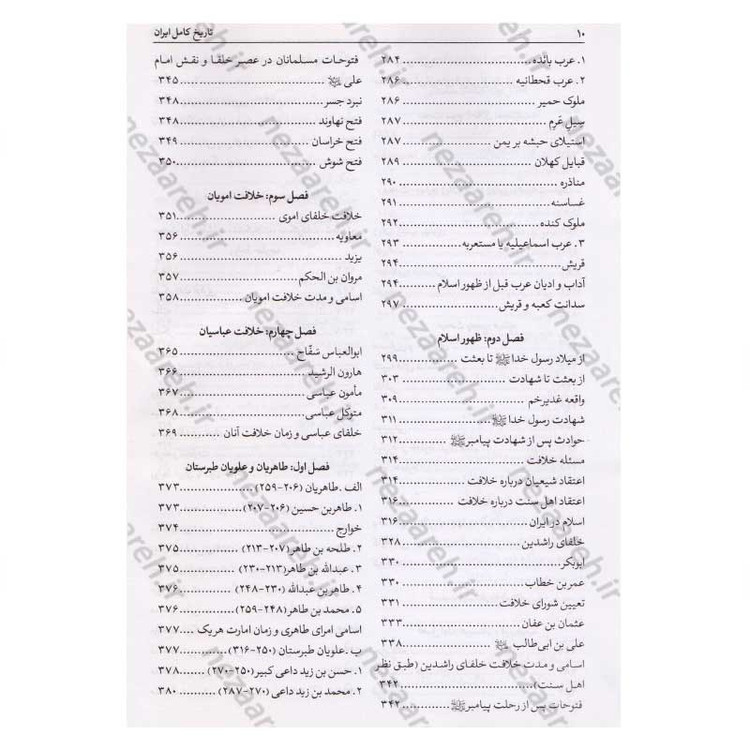 ۱۰
تاریخ کامل ایران
۱. عرب بائده ... ۲۸۴
۲. عرب قحطانیه ... ۲۸۶
ملوک حمیر ... ۲۸۶
سیل عَرِم ... ۲۸۷
استیلای حبشه بر یمن ... ۲۸۷
قبایل کهلان ... ۲۸۹
مناذره ... ۲۹۰
غساسنه ... ۲۹۱
ملوک کنده ... ۲۹۲
۳. عرب اسماعیلیه یا مستعربه ... ۲۹۳
قریش ... ۲۹۴
آداب و ادیان عرب قبل از ظهور اسلام ... ۲۹۴
سدانت کعبه و قریش ... ۲۹۷
فصل دوم: ظهور اسلام
از میلاد رسول خدا ﷺ تا بعثت ... ۲۹۹
از بعثت تا شهادت ... ۳۰۳
واقعه غدیرخم ... ۳۰۹
شهادت رسول خدا ﷺ ... ۳۱۱
حوادث پس از شهادت پیامبر ﷺ ... ۳۱۲
مسئله خلافت ... ۳۱۴
اعتقاد شیعیان درباره خلافت ... ۳۱۴
اعتقاد اهل سنت درباره خلافت ... ۳۱۶
اسلام در ایران ... ۳۱۶
خلفای راشدین ... ۳۲۸
ابوبکر ... ۳۳۰
عمر بن خطاب ... ۳۳۰
تعیین شورای خلافت ... ۳۳۱
عثمان بن عفان ... ۳۳۳
علی بن ابی‌طالب ... ۳۳۸
اسامی و مدت خلافت خلفای راشدین (طبق نظر
اهل سنت) ... ۳۴۲
فتوحات پس از رحلت پیامبر ﷺ ... ۳۴۲
فتوحات مسلمانان در عصر خلفا و نقش امام
علی ... ۳۴۵
نبرد جسر ... ۳۴۸
فتح نهاوند ... ۳۴۸
فتح خراسان ... ۳۴۹
فتح شوش ... ۳۵۰
فصل سوم: خلافت امویان
خلافت خلفای اموی ... ۳۵۱
معاویه ... ۳۵۶
یزید ... ۳۵۶
مروان بن الحکم ... ۳۵۷
اسامی و مدت خلافت امویان ... ۳۵۸
فصل چهارم: خلافت عباسیان
ابوالعباس سَفّاح ... ۳۶۵
هارون الرشید ... ۳۶۶
مأمون عباسی ... ۳۶۷
متوکل عباسی ... ۳۶۸
خلفای عباسی و زمان خلافت آنان ... ۳۶۹
فصل اول: طاهریان و علویان طبرستان
الف. طاهریان (۲۰۶-۲۵۹) ... ۳۷۳
۱. طاهربن حسین (۲۰۶-۲۰۷) ... ۳۷۳
خوارج ... ۳۷۴
۲. طلحه بن طاهر (۲۰۷-۲۱۳) ... ۳۷۵
۳. عبدالله بن طاهر (۲۱۳-۲۳۰) ... ۳۷۵
۴. طاهربن عبدالله (۲۳۰-۲۴۸) ... ۳۷۶
۵. محمد بن طاهر (۲۴۸-۲۵۹) ... ۳۷۶
اسامی امرای طاهری و زمان امارت هریک ... ۳۷۷
ب. علویان طبرستان (۲۵۰-۳۱۶) ... ۳۷۷
۱. حسن بن زید داعی کبیر (۲۵۰-۲۷۰) ... ۳۷۸
۲. محمد بن زید داعی (۲۷۰-۲۸۷) ... ۳۸۰
nezaareh.ir